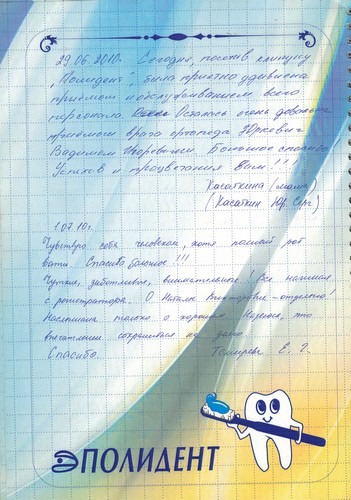 29.06.2010г. Сегодня, посетив клинику
„Полидент", была приятно удивлена
приёмом и обслуживанием всего
персонала. Осталась очень довольна
приёмом врача ортопеда Юркевич
Вадимом Игоревичем. Большое спасибо
Успехов и процветания Вам!!!
Касаткина (мама)
(Касаткин Юр. Серг)
1.07.10г.
Чувствую себя человеком, хотя полный рот
ваты. Спасибо большое!!!
Чуткие, заботливые, внимательные! Все начиная
с регистратора. О Наталье Викторовне - отдельно!
Наслышана только о хорошем. Надеюсь, что
впечатление сохранится на долго.
Спасибо. Е. Г.
ПОЛИДЕНТ